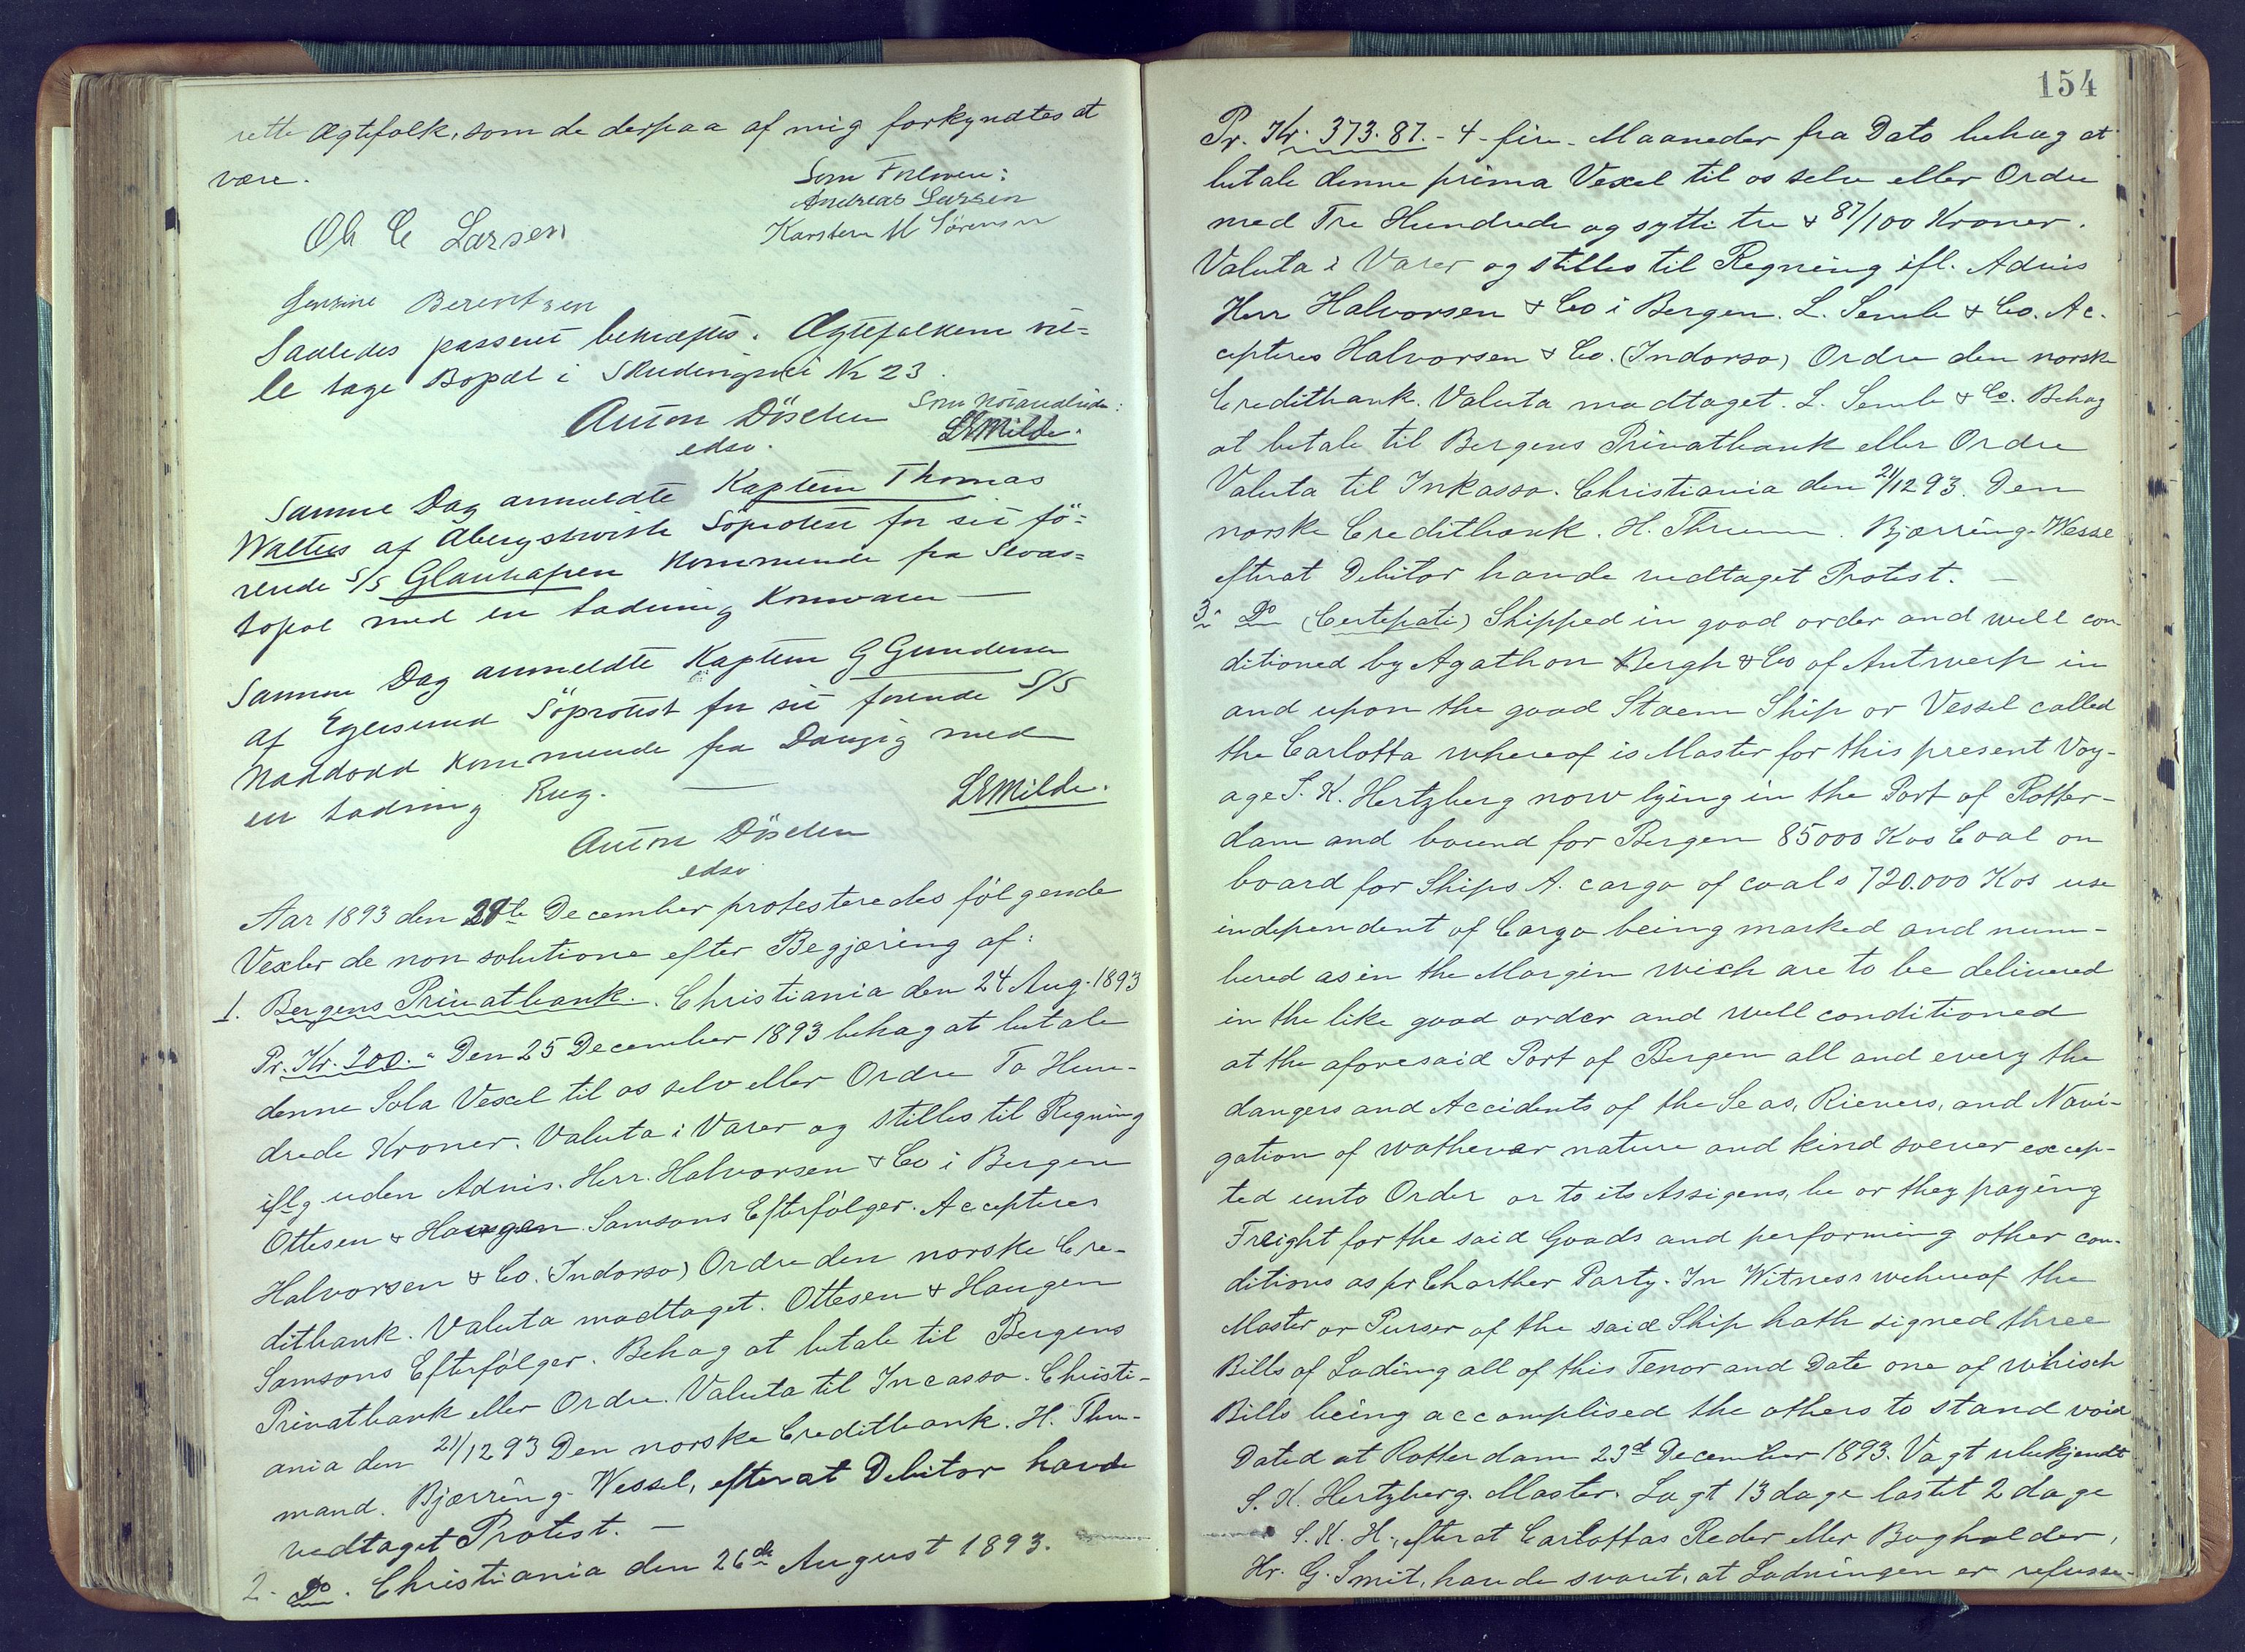 rette Ægtefolk, som de derpaa af mig forkyndtes at
være.
Som Forlovere:
Andreas Larsen
Karsten M Sörensen
Ole C Larsen
Jensine Berentsen
Saaledes passeret bekræftes. Ægtefolkene vil-
le tage Bopæl i Skudevigsvei No 23.
Anton Döscher
edsv.
Som Notarialvidne:
LEMilde.
Samme Dag anmeldte Kaptein Thomas
Walters af Aberystwith Söprotest for sit fö-
rende S/S Glanhafren kommende fra Sevas-
topol med en Ladning Kornvarer —
Samme Dag anmeldte Kaptein G Gundersen
af Egersund Söprotest for sit förende S/S
Naddodd kommende fra Danzig med
en Ladning Rug. —
LEMilde.
Anton Döscher
edsv
Aar 1893 den 29te December protesteredes fölgende
Vexler de non solutione efter Begjæring af:
1. Bergens Privatbank. Christiania den 24 Aug. 1893
Pr. Kr. 200.- Den 25 December 1893 behag at betale
denne Sola Vexel til os selv eller Ordre To Hun-
drede Kroner. Valuta i Varer og stilles til Regning
iflg uden Advis. Herr. Halvorsen & Co i Bergen
Ottesen & Haugen Samsons Efterfölger. Accepteres
Halvorsen & Co. (Indorso) Ordre den norske Cre-
ditbank. Valuta modtaget. Ottesen & Haugen
Samsons Efterfölger. Behag at betale til Bergens
Privatbank eller Ordre. Valuta til Incasso. Christi-
ania den 21/12 93 Den norske Creditbank. H. Thr-
mand. Bjærring-Wessel, efterat Debitor havde
vedtaget Protest. —
2. Do. Christiania den 26de August 1893.
154
Pr. Kr. 373.87.- 4 - fire - Maaneder fra Dato behag at
betale denne prima Vexel til os selv eller Ordre
med Tre Hundrede og sytti tre & 87/100 Kroner.
Valuta i Varer og stilles til Regning ifl. Advis
Herr Halvorsen & Co i Bergen. L. Semb & Co. Ac-
cepteres Halvorsen & Co. (Indorso) Ordre den norske
Creditbank. Valuta modtaget. L. Semb & Co. Behag
at betale til Bergens Privatbank eller Ordre
Valuta til Inkasso. Christiania den 21/12 93. Den
norske Creditbank. H. Bjærring-Wessel
efterat Debitor havde vedtaget Protest. —
3. Do (Certeparti) Shipped in good order and well con-
ditioned by Agathon Bergh & Co of Antwerp in
and upon the good Staem Ship or Vessel called
the Carlotta whereof is Master for this present Voy-
age S. K. Hertzberg now lying in the Port of Rotter-
dam and bound for Bergen 85000 Kos Coal on
board for Ships A. cargo of coals 720.000 Kos use
independent of Cargo being marked and num-
bered as in the Margin wich are to be delivered
in the like good order and well conditioned
at the aforesaid Port of Bergen all and every the
dangers and Accidents of the Seas, Rievers, and Navi-
gation of wathever nature and kind soever excep-
ted unto Order or to its Assigens, he or they paying
Freight for the said Goods and performing other con-
ditions as pr Charther Party. In Witness wehereof the
Master or Purser of the said Ship hath signed three
Bills of Lading all of this Tenor and Date one of whisch
Bills being accomplised the others to stand void
Dated at Rotterdam 23d December 1893. Vagt ubekjendt
S. K. Hertzberg. Master. Lagt 13 dage lastet 2 dage
S. K. H., efterat Carlottas Reder eller Bogholder,
Hr. G. Smit, havde svaret, at Ladningen er refusse-